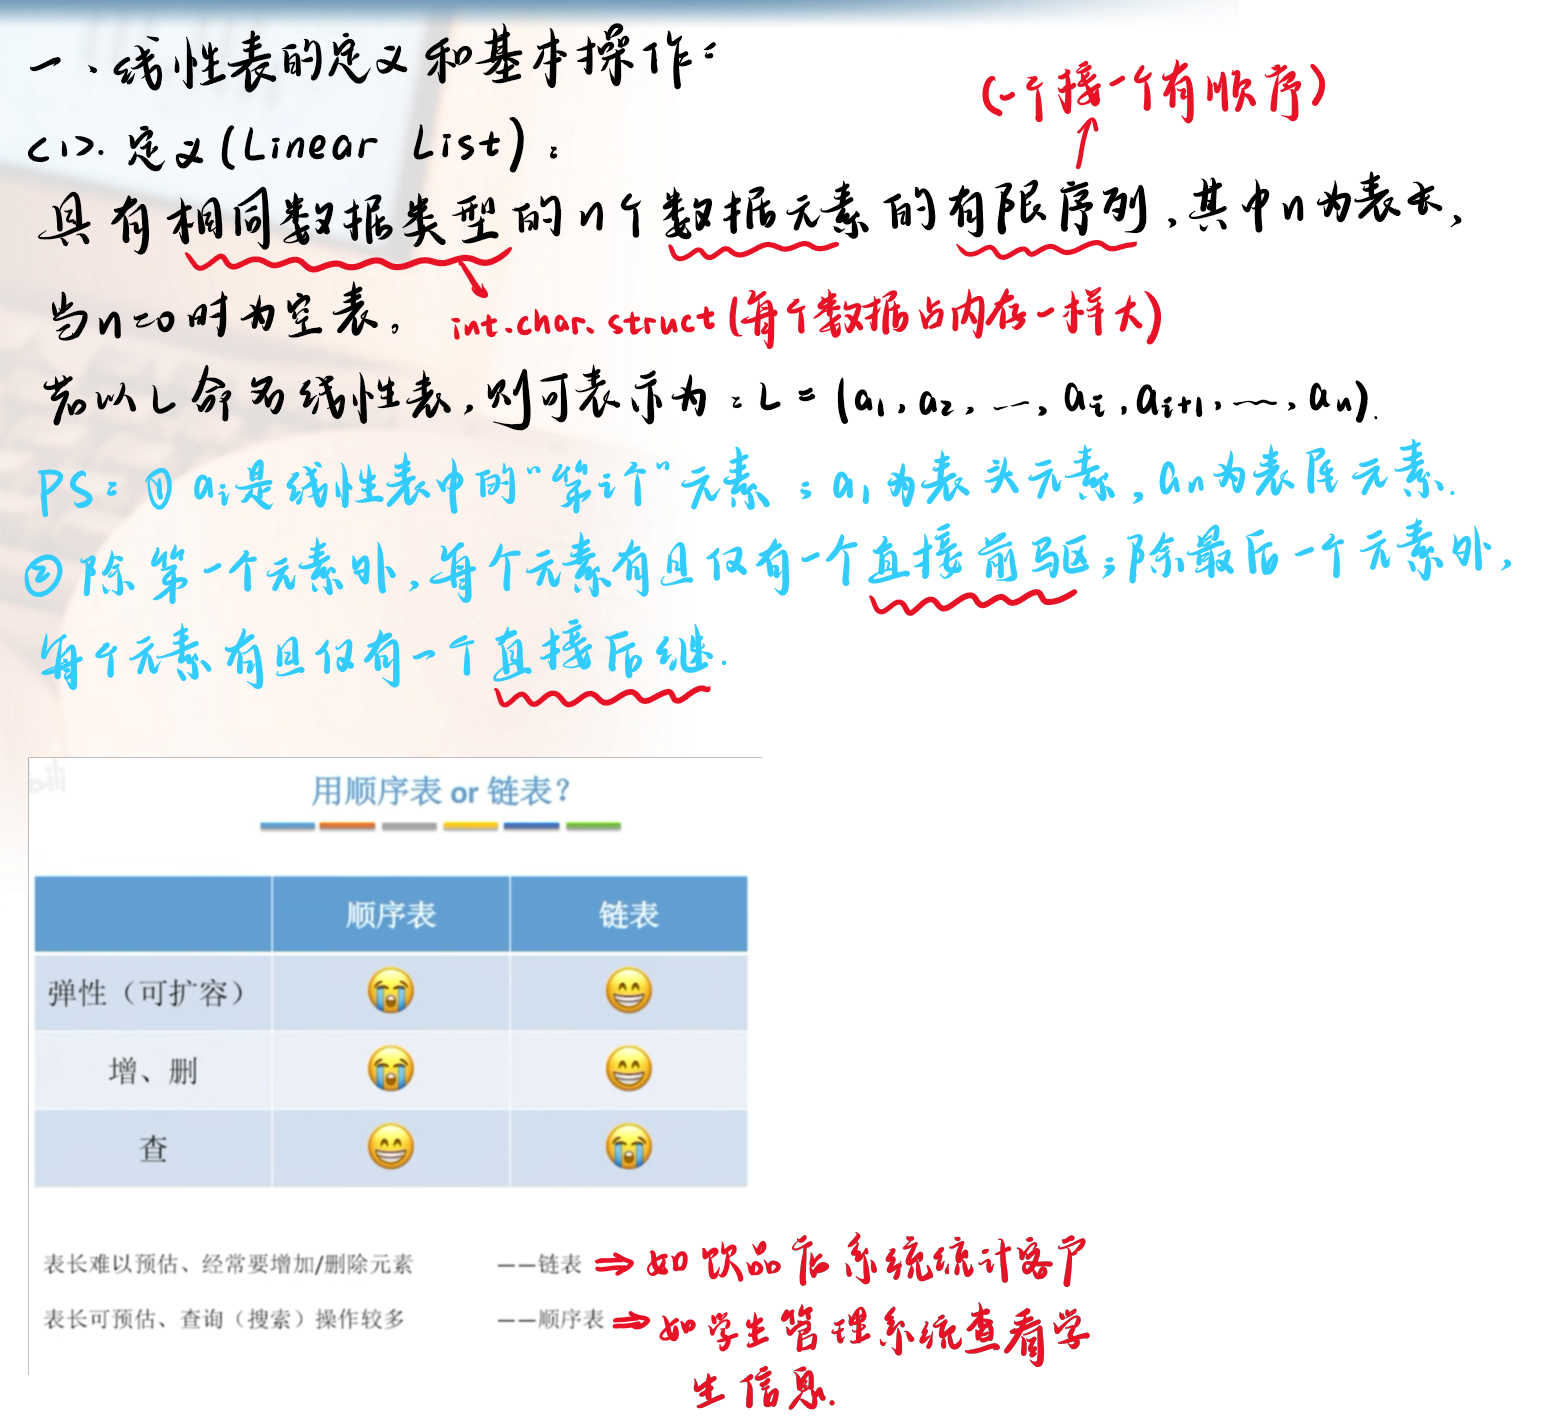 一、线性表的定义和基本操作：
(一个接一个有顺序)
<1>. 定义(Linear List)：
具有相同数据类型的n个数据元素的有限序列,其中n为表长,
当n=0时为空表。 int.char.struct(每个数据占内存一样大)
若以L命名线性表,则可表示为：L=(a₁,a₂,…,aᵢ,aᵢ₊₁,…,aₙ).
PS：① aᵢ是线性表中的“第i个”元素；a₁为表头元素,aₙ为表尾元素.
②除第一个元素外,每个元素有且仅有一个直接前驱;除最后一个元素外,
每个元素有且仅有一个直接后继.
用顺序表 or 链表？
顺序表 链表
弹性（可扩容） 😭 😁
增、删 😭 😁
查 😁 😭
表长难以预估、经常要增加/删除元素 ——链表 ⇒如饮品店系统统计客户
表长可预估、查询（搜索）操作较多 ——顺序表 ⇒如学生管理系统查看学
生信息.